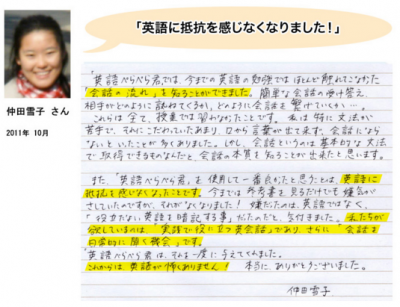 「英語に抵抗を感じなくなりました！」
仲田雪子 さん
2011年 10月
「英語ぺらぺら君」では、今までの英語の勉強ではほとんど触れてこなかった
「会話の流れ」を知ることができました。簡単な会話の受け答え、
相手がどのように訪ねてくるか、どのように会話を繋げていくか…。
これらは全て、授業では習わなかったことです。私は特に文法が
苦手で、それにこだわっていたあまり、口から言葉が出て来ず、会話になら
ないといったことが多くありました。しかし、会話というのは基本的な文法
で取得できるものなんだと、会話の本質を知ることが出来たと思います。
また「英語ぺらぺら君」を使用して一番良かったと思うことは、英語に
抵抗を感じなくなったことです。今までは参考書を見るだけでも嫌気が
さしていたのですが、それがなくなりました！嫌だったのは、英語ではなく、
「役立たない英語を暗記する事」だったのだと、気付きました。私たちが
欲しているのは、「実践で役に立つ英会話」であり、さらに「会話を
日常的に聞く機会」です。
英語ぺらぺら君は、それを一度に与えてくれました。
これからは英語が怖くありません！ 本当に、ありがとうございました。
仲田雪子